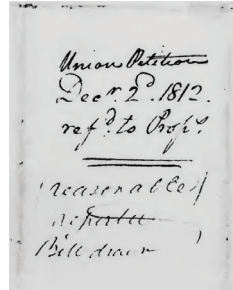 Union Petition
Decr. 2d. 1812.
refd. to Props.
reasonable
reported
Bill drawn